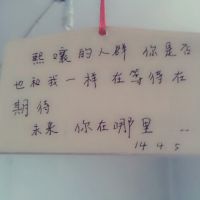 熙嚷的人群 你是否
也和我一样 在等待在
期待
未来 你在哪里 ...
14.4.5